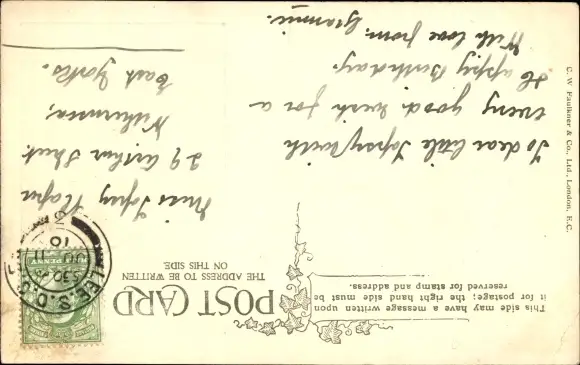 This side may have a message written upon
it for postage; the right hand side must be
reserved for stamp and address.
POST CARD
THE ADDRESS TO BE WRITTEN
ON THIS SIDE.
LEE.S.O.
JU 11
10
PENNY
To dear little Topsy With
every good wish for a
Happy Birthday.
With love from Grannie.
Miss Topsy
29 Arthur Street
Withernsea,
East Yorks.
C. W. Faulkner & Co., Ltd., London, E.C.